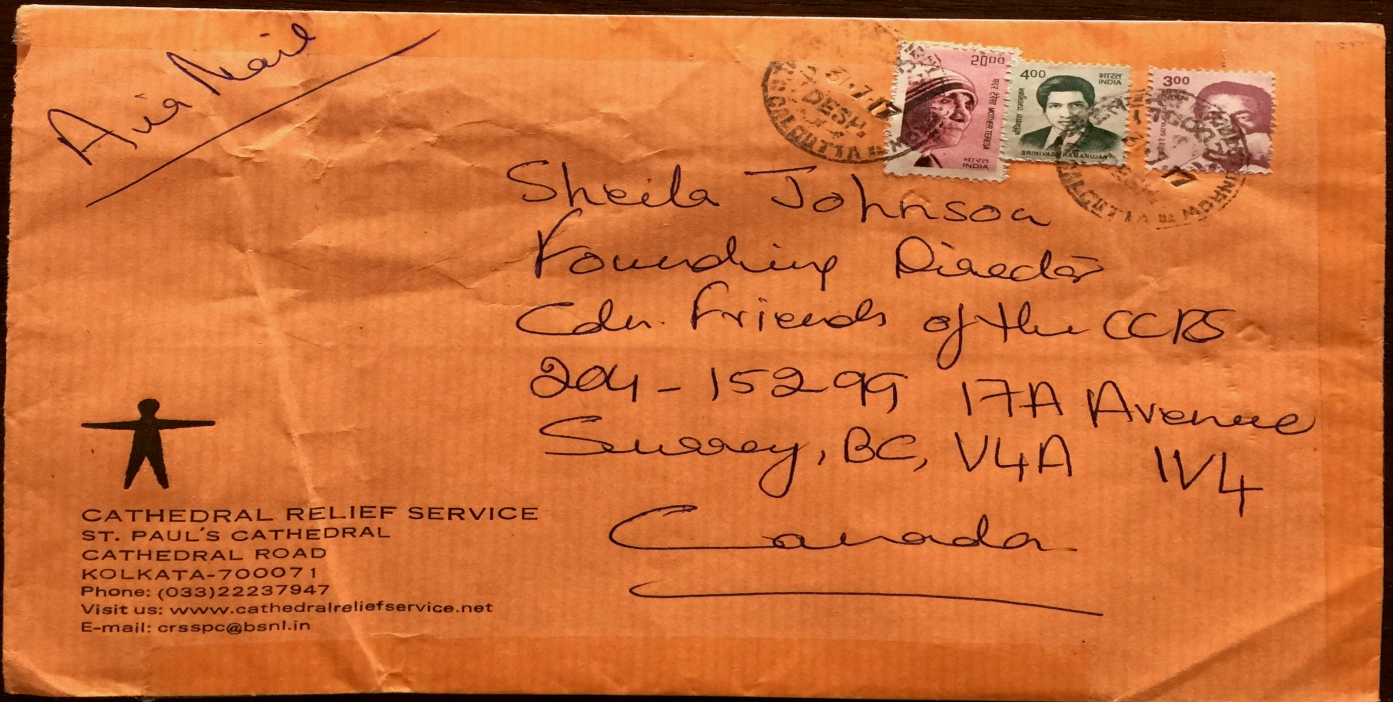 Air Mail
2000
मदर टेरेसा MOTHER TERESA
भारत
INDIA
400
भारत
INDIA
SRINIVASA RAMANUJAN
300
31.7.17
DESH
CALCUTTA
7.17
CALCUTTA
Sheila Johnson
Founding Director
Cdn. Friends of the CCRS
204-15299 17A Avenue
Surrey, BC, V4A 1V4
Canada
CATHEDRAL RELIEF SERVICE
ST. PAUL'S CATHEDRAL
CATHEDRAL ROAD
KOLKATA-700071
Phone: (033)22237947
Visit us: www.cathedralreliefservice.net
E-mail: crsspc@bsnl.in